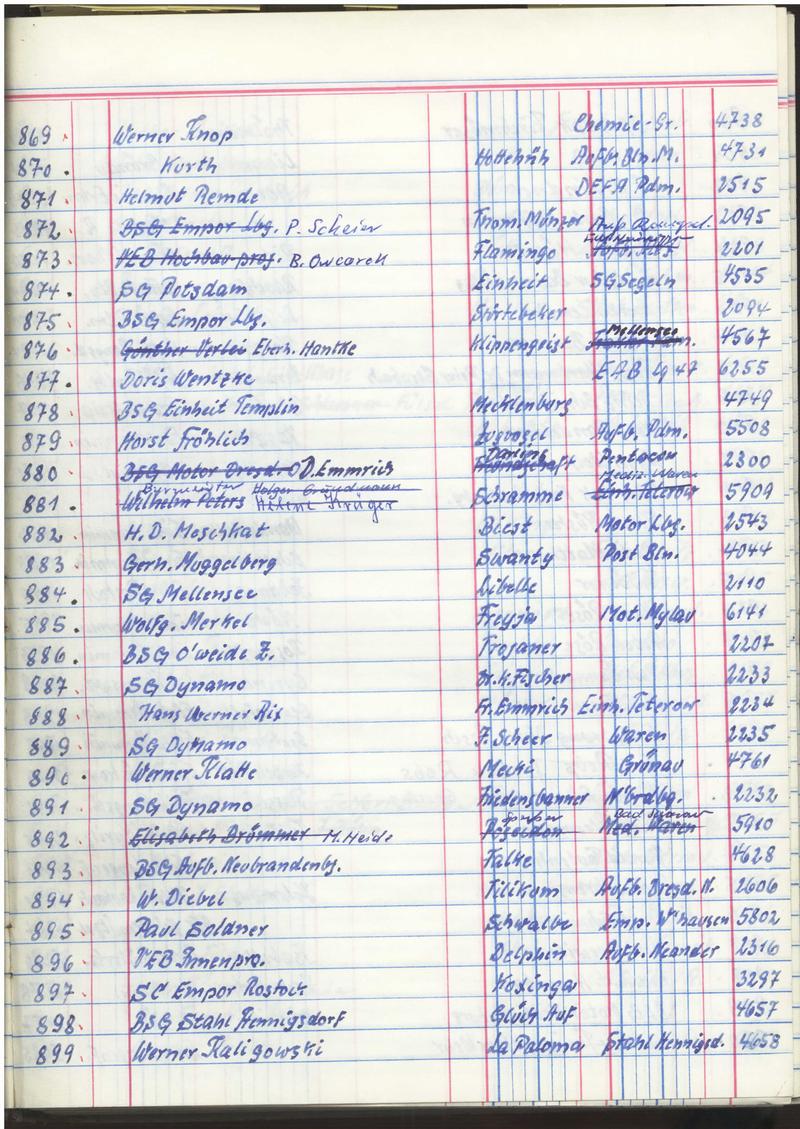 869. Werner Knop Chemie-Gr. 4738
870. Kurth Hottehüh Aufb. Bln. M. 4731
871. Helmut Remde DEFA Pdm. 2515
872. BSG Empor Lbg. P. Scheier Thom. Münzer 2095
873. VEB Hochbau proj. B. Owcarek Flamingo 2201
874. SG Potsdam Einheit SG Segeln 4535
875. BSG Empor Lbg. Störtebeker 2094
876. Günther Verlei Eberh. Hantke Klippengeist Mellensee 4567
877. Doris Wentzke EAB Lg 47 6255
878. BSG Einheit Templin Mecklenburg 4749
879. Horst Fröhlich Zugvogel Aufb. Pdm. 5508
880. BSG Motor Dresd. O D. Emmrich Darling Pentacon 2300
Bürgermeister Holger Gründmann Mediz. Waren
881. Wilhelm Peters Helene Krüger Schramme Einh. Teterow 5909
882. H. D. Meschkat Biest Motor Lbg. 2543
883. Gerh. Muggelberg Swanty Post Bln. 4044
884. SG Mellensee Libelle 2110
885. Wolfg. Merkel Freyja Mot. Mylau 6141
886. BSG O'weide Z. Trojaner 2207
887. SG Dynamo H. K. Fischer 2233
888. Hans Werner Rix Fr. Emmrich Einh. Teterow 2234
889. SG Dynamo F. Scheer Waren 2235
890. Werner Klatte Mecki Grünau 4761
891. SG Dynamo Friedensbanner N'brdbg. 2232
892. Elisabeth Brömmer M. Heide Poseidon Med. Waren 5910
893. BSG Aufb. Neubrandenbg. Falke 4628
894. W. Diebel Tilikum Aufb. Dresd. N. 2606
895. Paul Soldner Schwalbe Emp. W'hausen 5802
896. VEB Innenpro. Delphin Aufb. Neander 2316
897. SC Empor Rostock Koxinga 3297
898. BSG Stahl Hennigsdorf Glück Auf 4657
899. Werner Kaligowski La Paloma Stahl Hennigsd. 4658